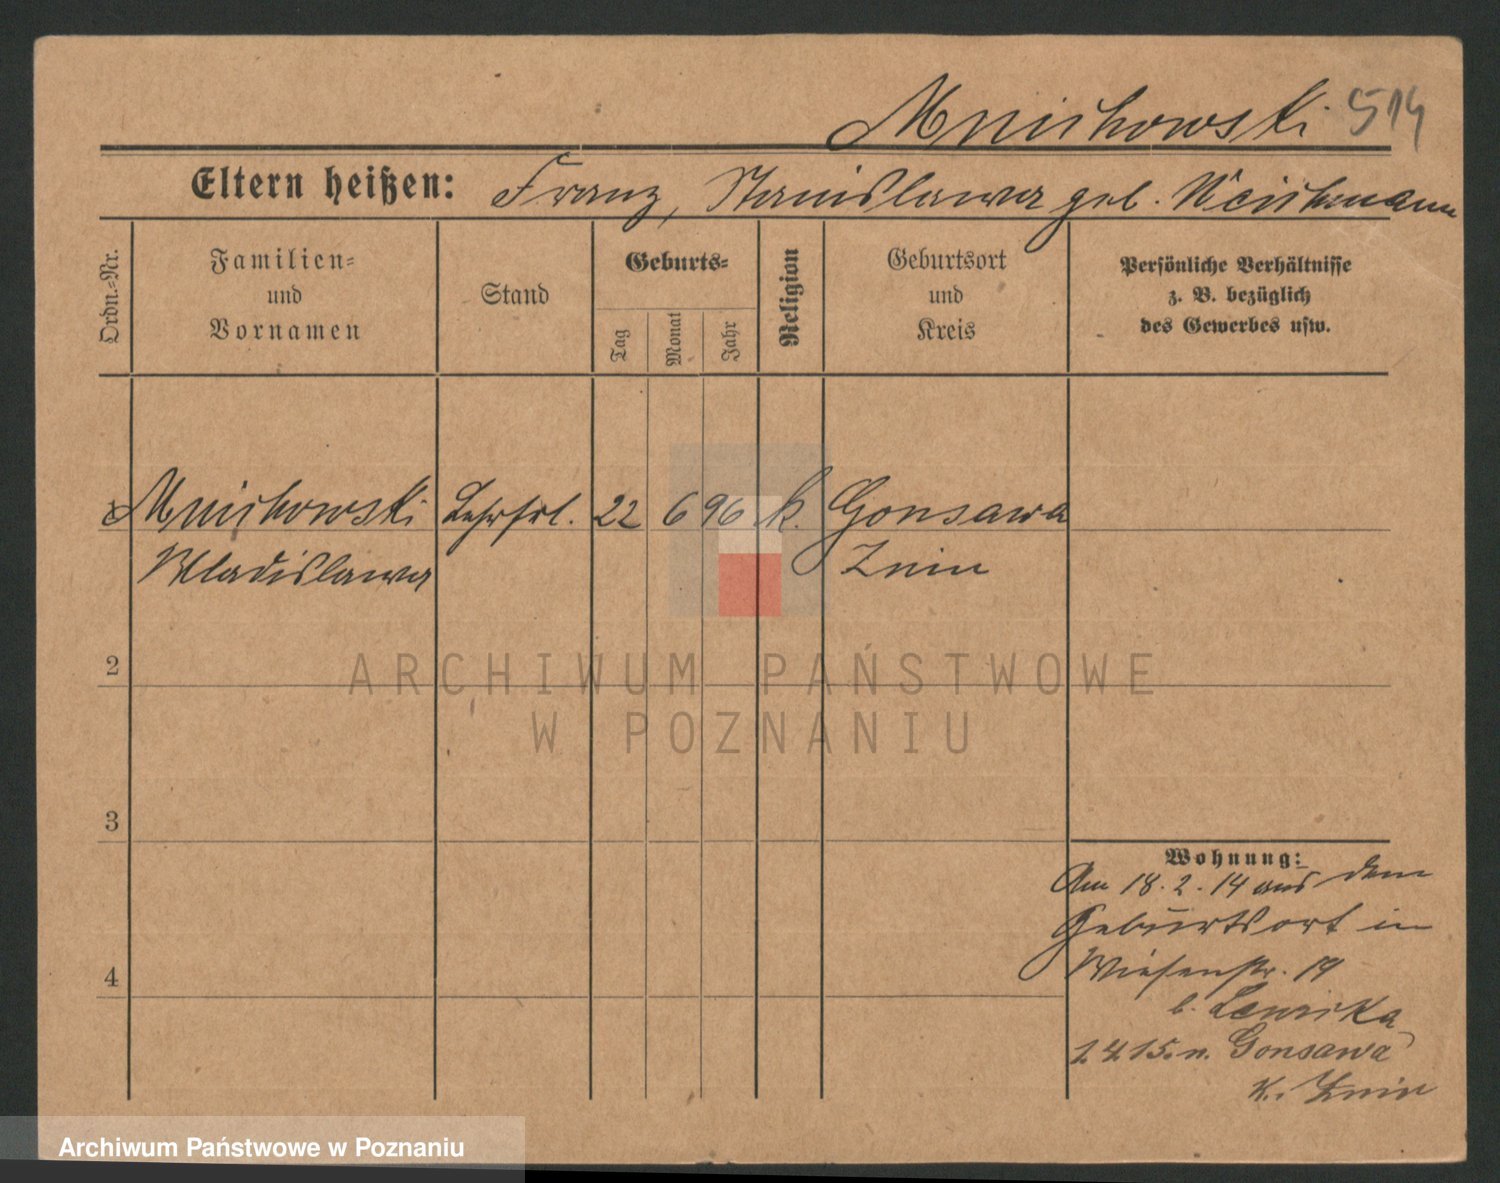 Mnichowski 514
Eltern heißen: Franz, Stanislawa geb. Weichmann
Ordn.-Nr.
Familien-
und
Vornamen
Stand
Geburts-
Tag
Monat
Jahr
Religion
Geburtsort
und
Kreis
Persönliche Verhältnisse
z. B. bezüglich
des Gewerbes usw.
1 Mnichowski Lehrfrl. 22 6 96 k. Gonsawa
Wladislawa Znin
2
3
4
Wohnung:
Am 18. 2. 14 aus dem
Geburtsort in
Wiesenstr. 19
b.
1.4.15. n. Gonsawa
K. Znin
ARCHIWUM PAŃSTWOWE
W POZNANIU
Archiwum Państwowe w Poznaniu